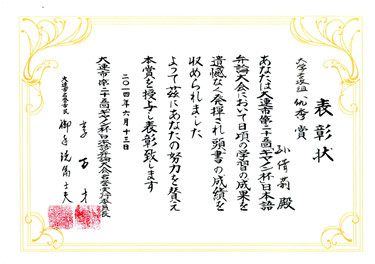 表彰状
大学高級組 優秀賞
孫倩莉 殿
あなたは大連市第二十五回キヤノン杯日本語
弁論大会において日頃の学習の成果を
遺憾なく発揮され頭書の成績を
収められました
よって茲にあなたの努力を賛え
本賞を授与し表彰致します
二〇一四年六月十三日
大連市第二十五回キヤノン杯日本語弁論大会実行委員長